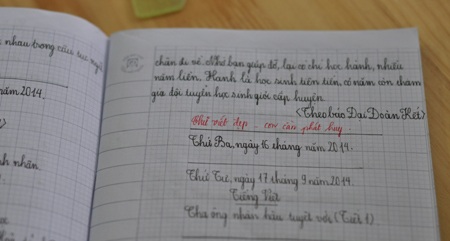 nhau trong câu tục ngữ
năm 2014.
nh nhân
chân đi về. Nhờ bạn giúp đỡ, lại có chí học hành, nhiều
năm liền, Hanh là học sinh tiên tiến, có năm còn tham
gia đội tuyển học sinh giỏi cấp huyện.
(Theo báo Đại Đoàn Kết)
Chữ viết đẹp con cần phát huy
Thứ Ba, ngày 16 tháng năm 2014.
Thứ Tư, ngày 17 tháng 9 năm 2014.
Tiếng Việt
Thư ông nhân hậu tuyệt vời (Tiết 1)